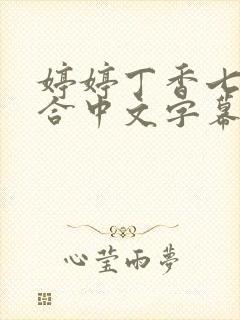 婷婷丁香七
合中文字幕
心莹雨夢